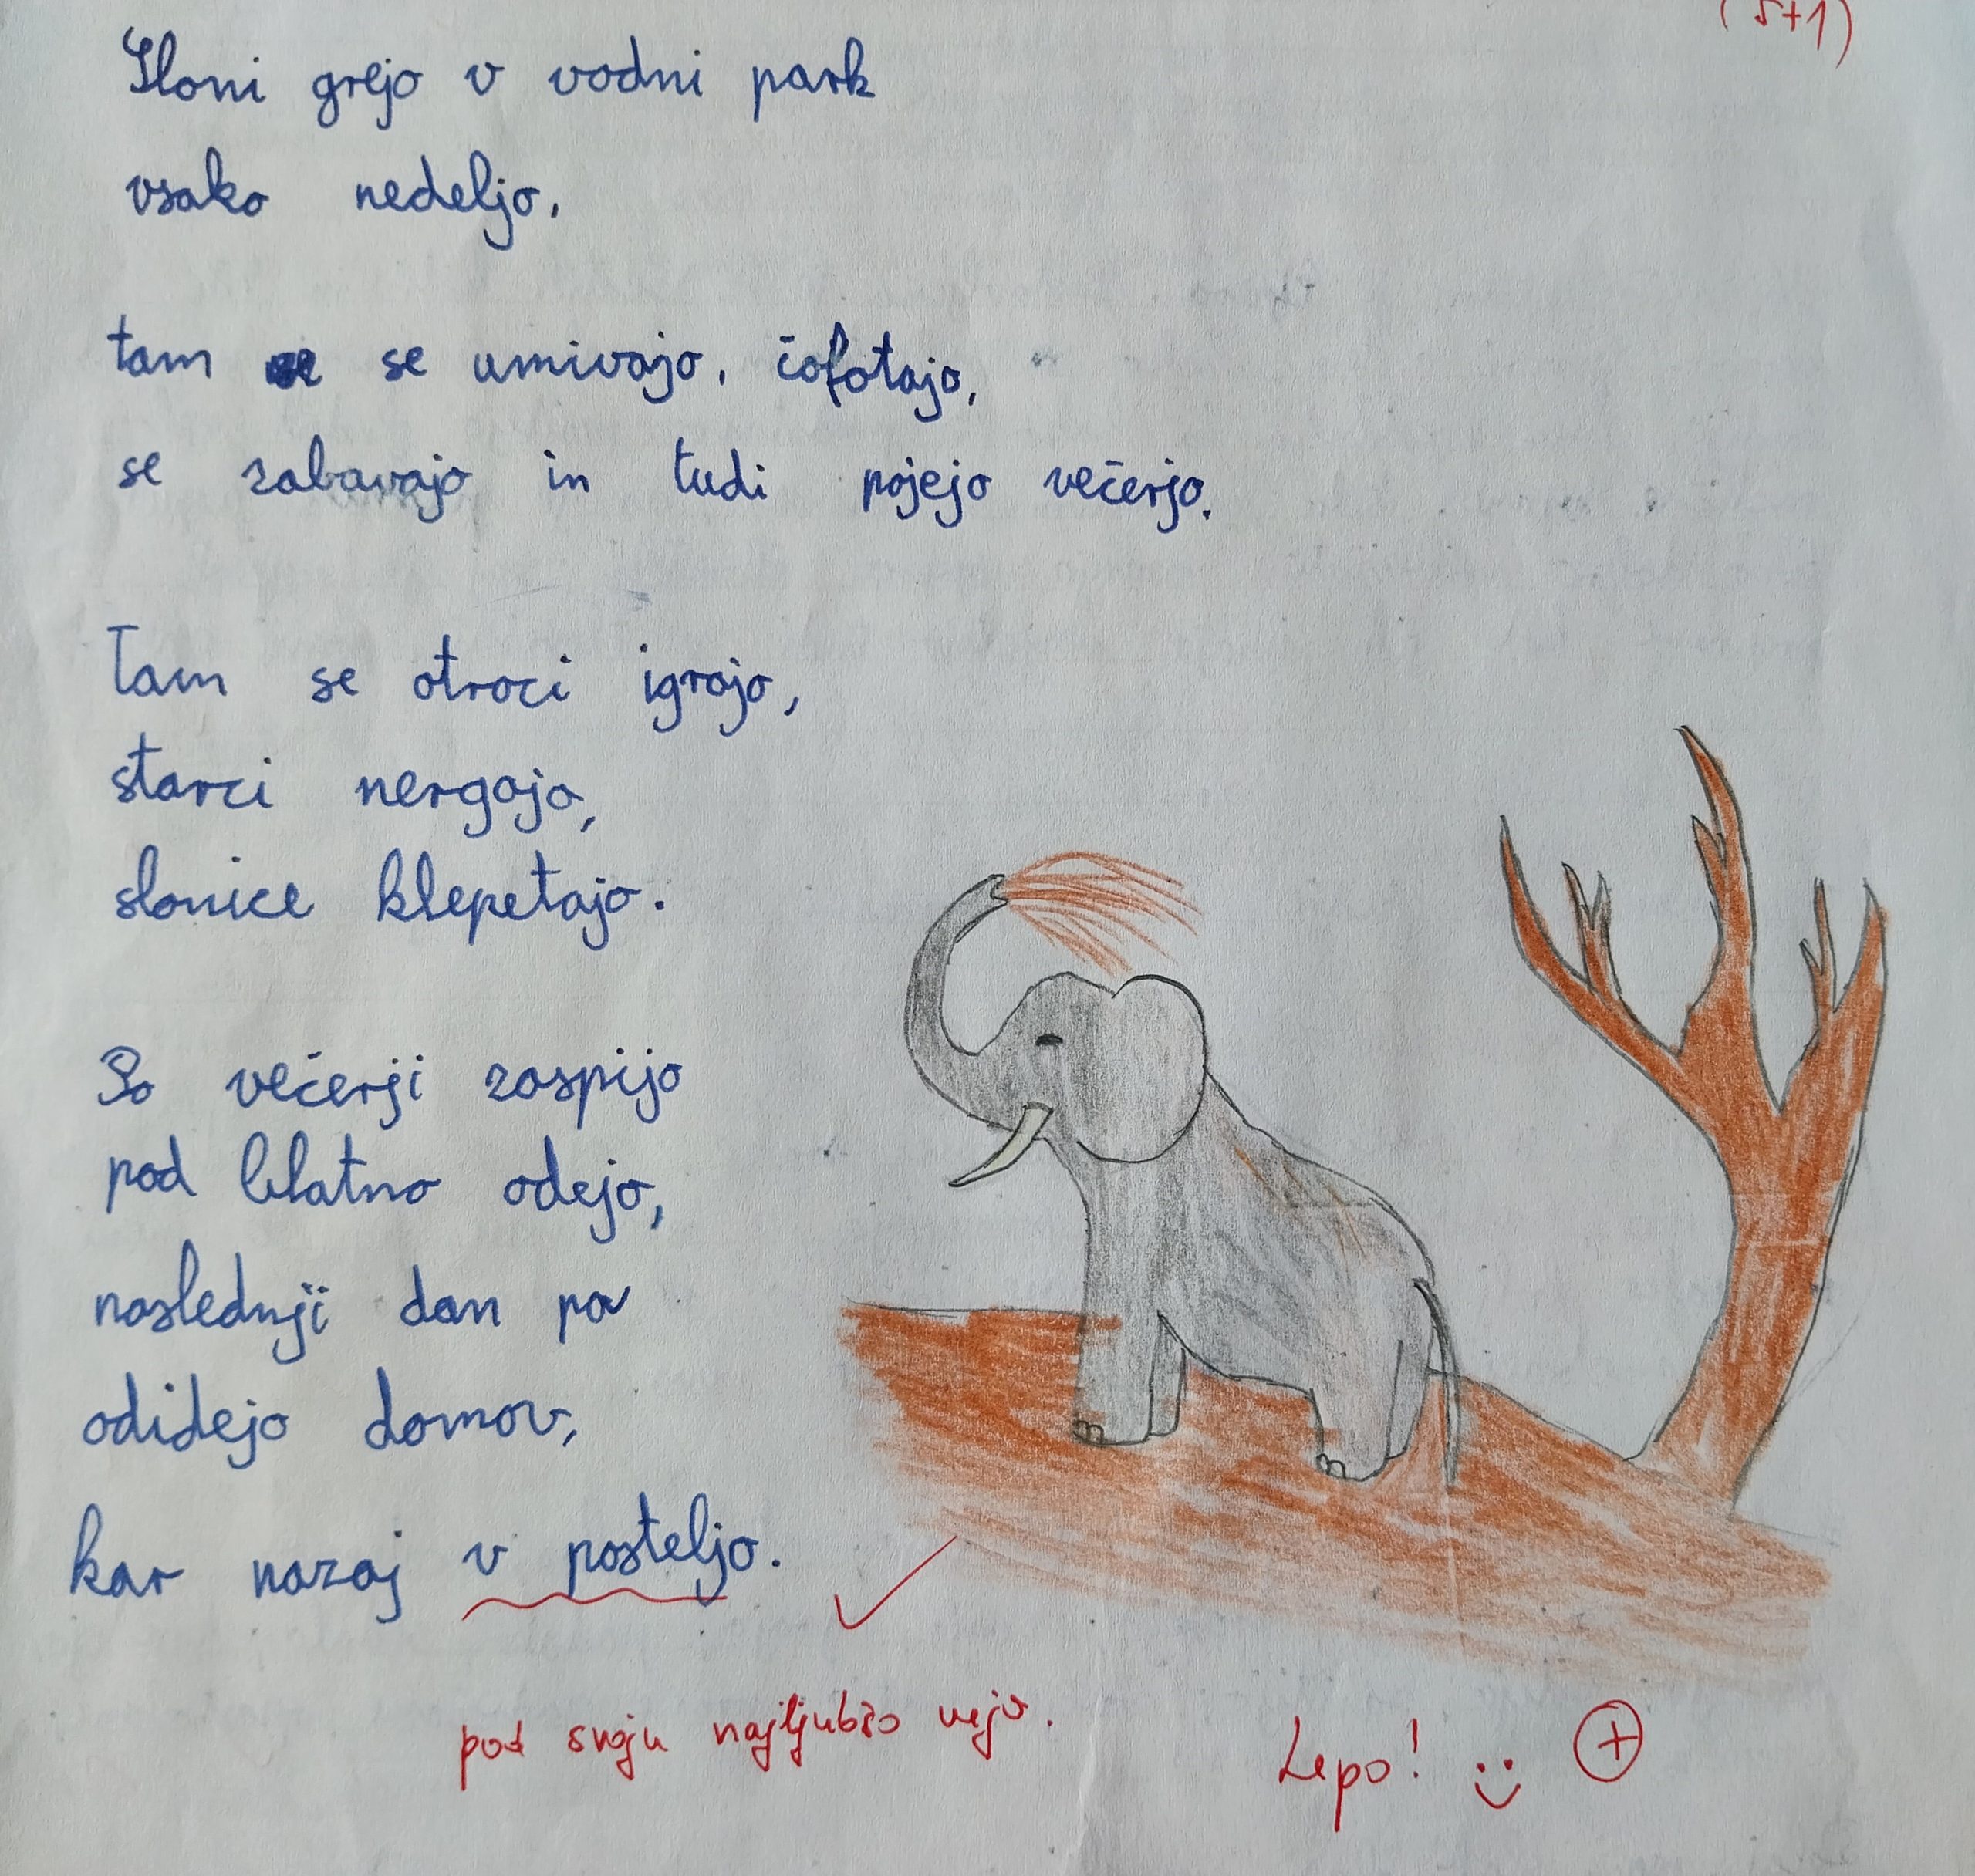 (5+1)
Sloni grejo v vodni park
vsako nedeljo,
tam se se umivajo, čofotajo,
se zabavajo in tudi pojejo večerjo.
Tam se otroci igrajo,
starci nergajo,
slonice klepetajo.
Po večerji zaspijo
pod blatno odejo,
naslednji dan pa
odidejo domov,
kar nazaj v posteljo.
pod svoju najljubšo vejo.
Lepo! :) +